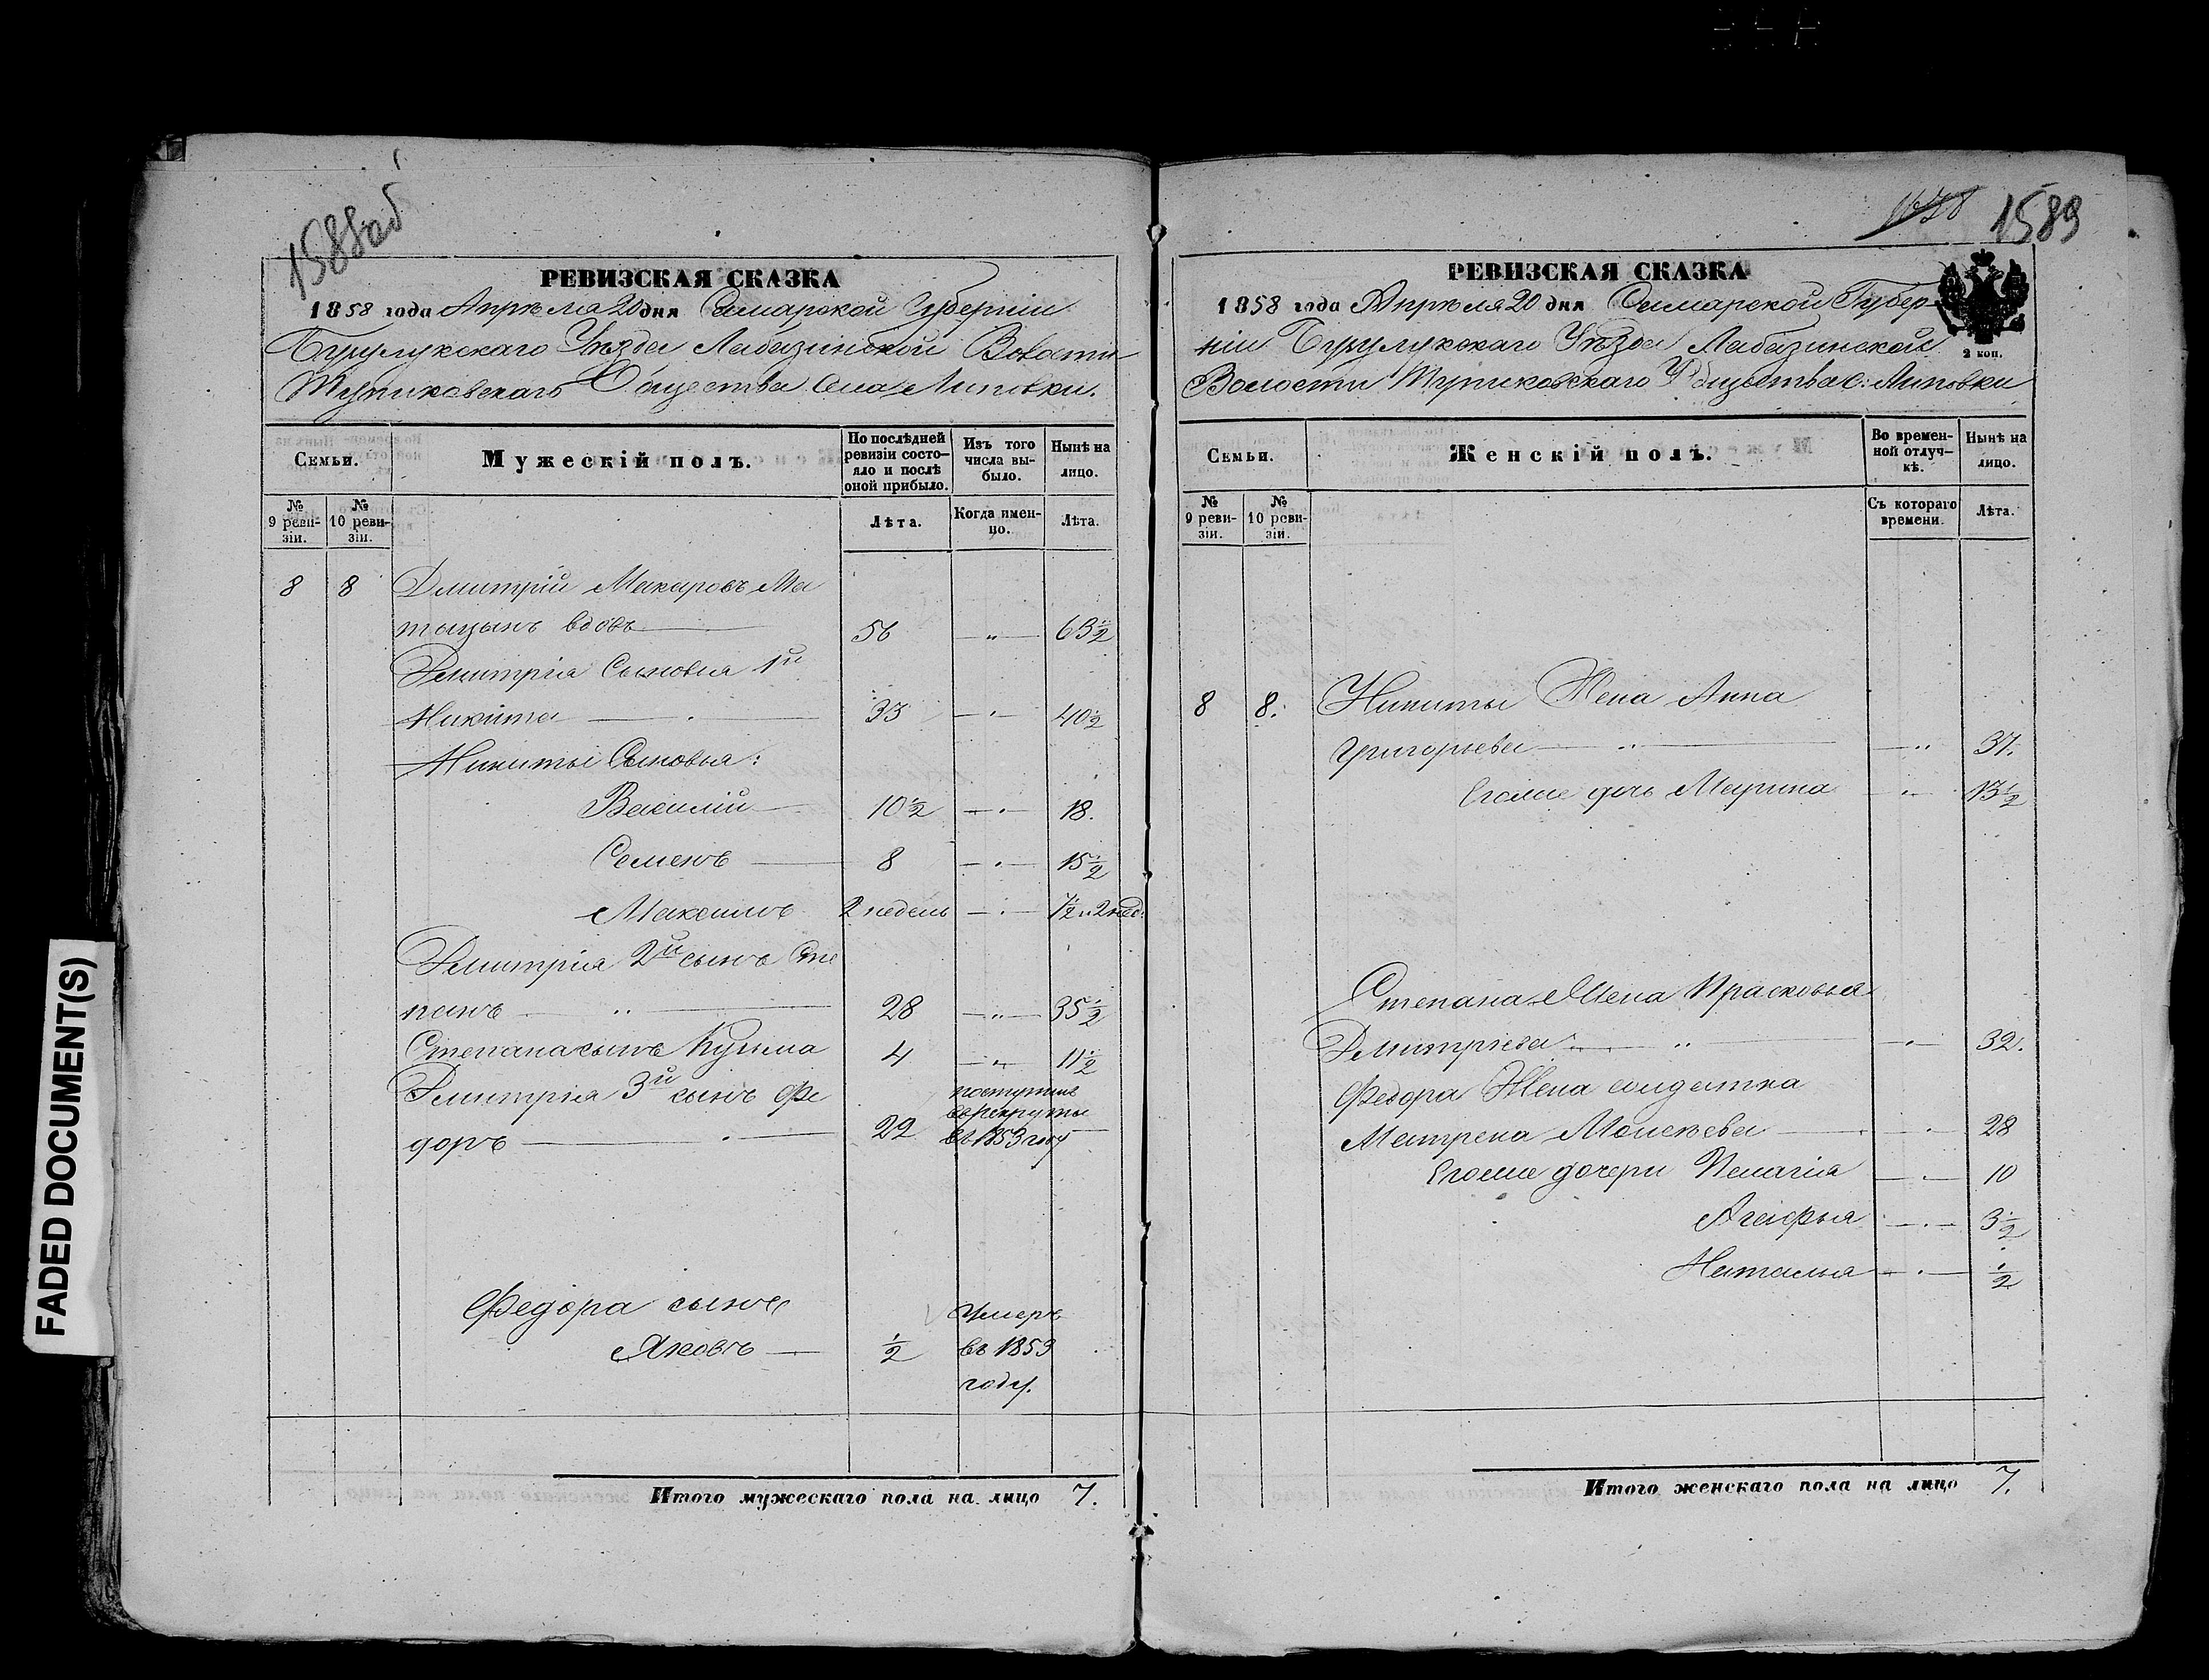 1588об
РЕВИЗСКАЯ СКАЗКА
1858 года Апрѣля 20 дня Самарской Губерніи
Бузулукскаго Уѣзда Лабазинской Волости
Тупиковскаго Общества Села Липовки.
Семьи.
Мужескій полъ.
По послѣдней ревизіи состо-
яло и послѣ
оной прибыло.
Изъ того
числа вы-
было.
Нынѣ на
лицо.
№
9 реви-
зіи.
№
10 реви-
зіи.
Лѣта.
Когда имен-
но.
Лѣта.
8 8 Дмитрій Макаровъ Ма
тыцынъ вдовъ 56 — " — 63 1/2
Дмитрія Сыновья 1й
Никита 33 — " — 40 1/2
Никиты Сыновья:
Василій 10 1/2 — " — 18.
Семенъ 8 — " — 15 1/2
Максимъ 2 недель — " — 7 1/2 и 2 нед.
Дмитрія 2й сынъ Сте
панъ 28 — " — 35 1/2
Степана сынъ Кузьма 4 — " — 11 1/2
Дмитрія 3й сынъ Фе
доръ 22 поступилъ
въ рекруты
въ 1853 году —
Федора сынъ Умеръ
Яковъ 1/2 въ 1853
году.
Итого мужескаго пола на лицо 7.
1589
РЕВИЗСКАЯ СКАЗКА
1858 года Апрѣля 20 дня Самарской Губер-
ніи Бузулукскаго Уѣзда Лабазинской
2 коп.
Волости Тупиковскаго Общества С: Липовки
Семьи.
Женскій полъ.
Во времен-
ной отлуч-
кѣ.
Нынѣ на
лицо.
№
9 реви-
зіи.
№
10 реви-
зіи.
Съ котораго
времени.
Лѣта.
8 8. Никиты Жена Анна
Григорьева — " — 37.
Егоже дочь Марина — " — 13 1/2
Степана Жена Прасковья
Дмитріева — " — 32.
Федора Жена солдатка
Матрена Моисѣева — " — 28
Егоже дочери Пелагія — " — 10
Агафья — " — 3 1/2
Наталья — " — 1/2
Итого женскаго пола на лицо 7.
FADED DOCUMENT(S)